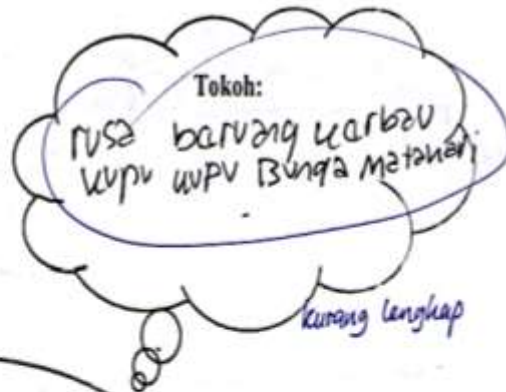 Tokoh:
rusa baruang karbau
kupu kupu Bunga Matahari
kurang lengkap